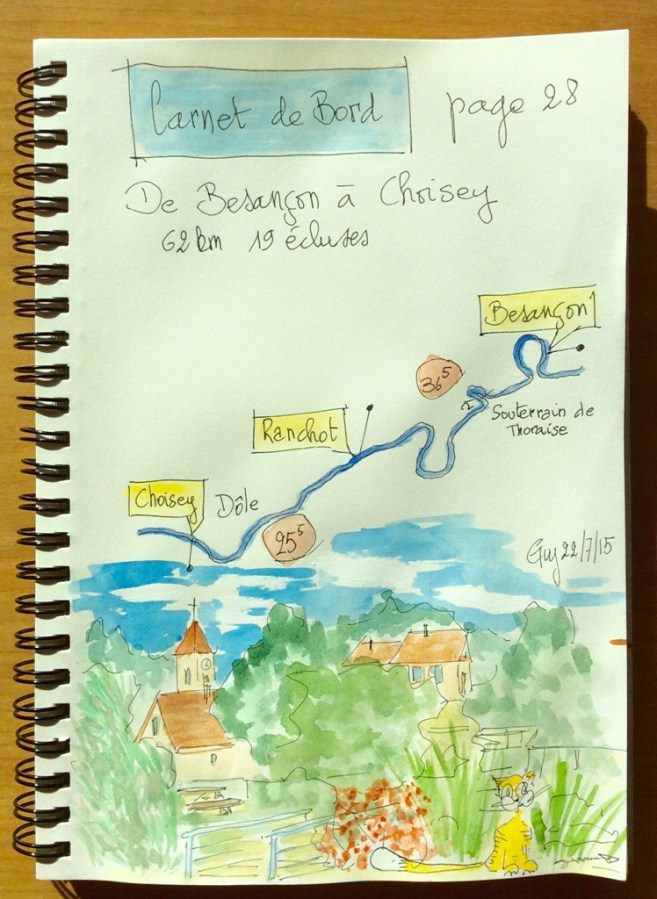 Carnet de Bord page 28
De Besançon à Choisey
62 km 19 écluses
Besançon
36⁵
Souterrain de
Thoraise
Ranchot
Choisey
Dôle
25⁵
Guy 22/7/15